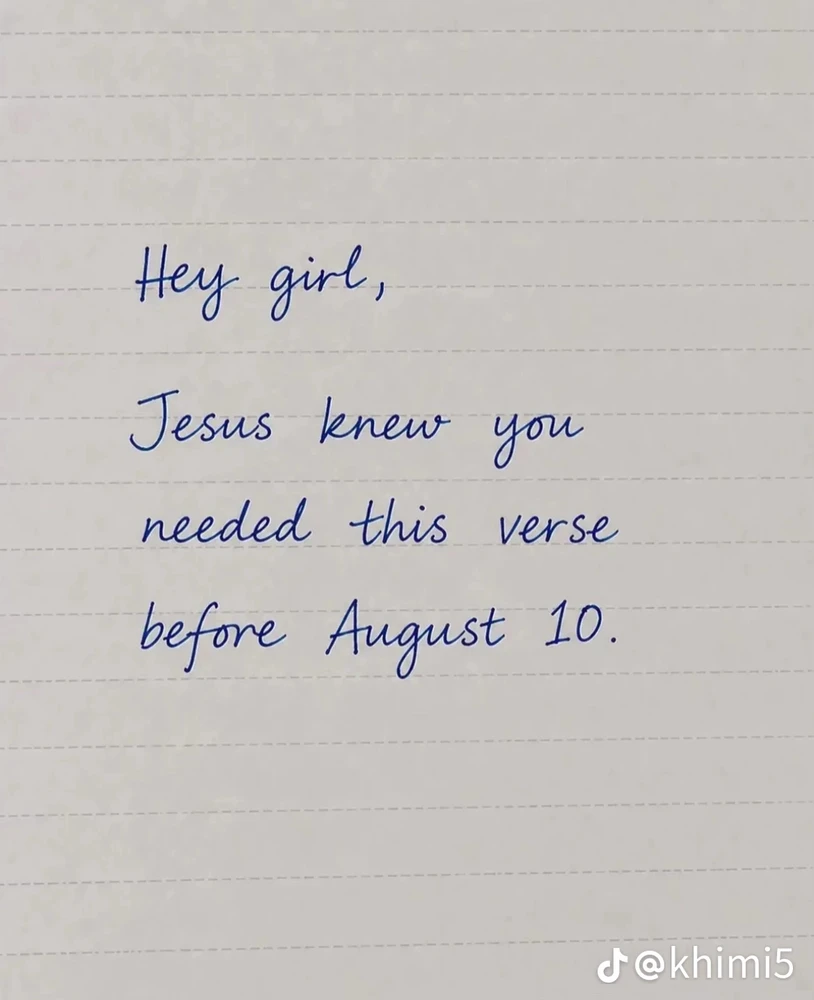 Hey girl,
Jesus knew you
needed this verse
before August 10.
@khimi5